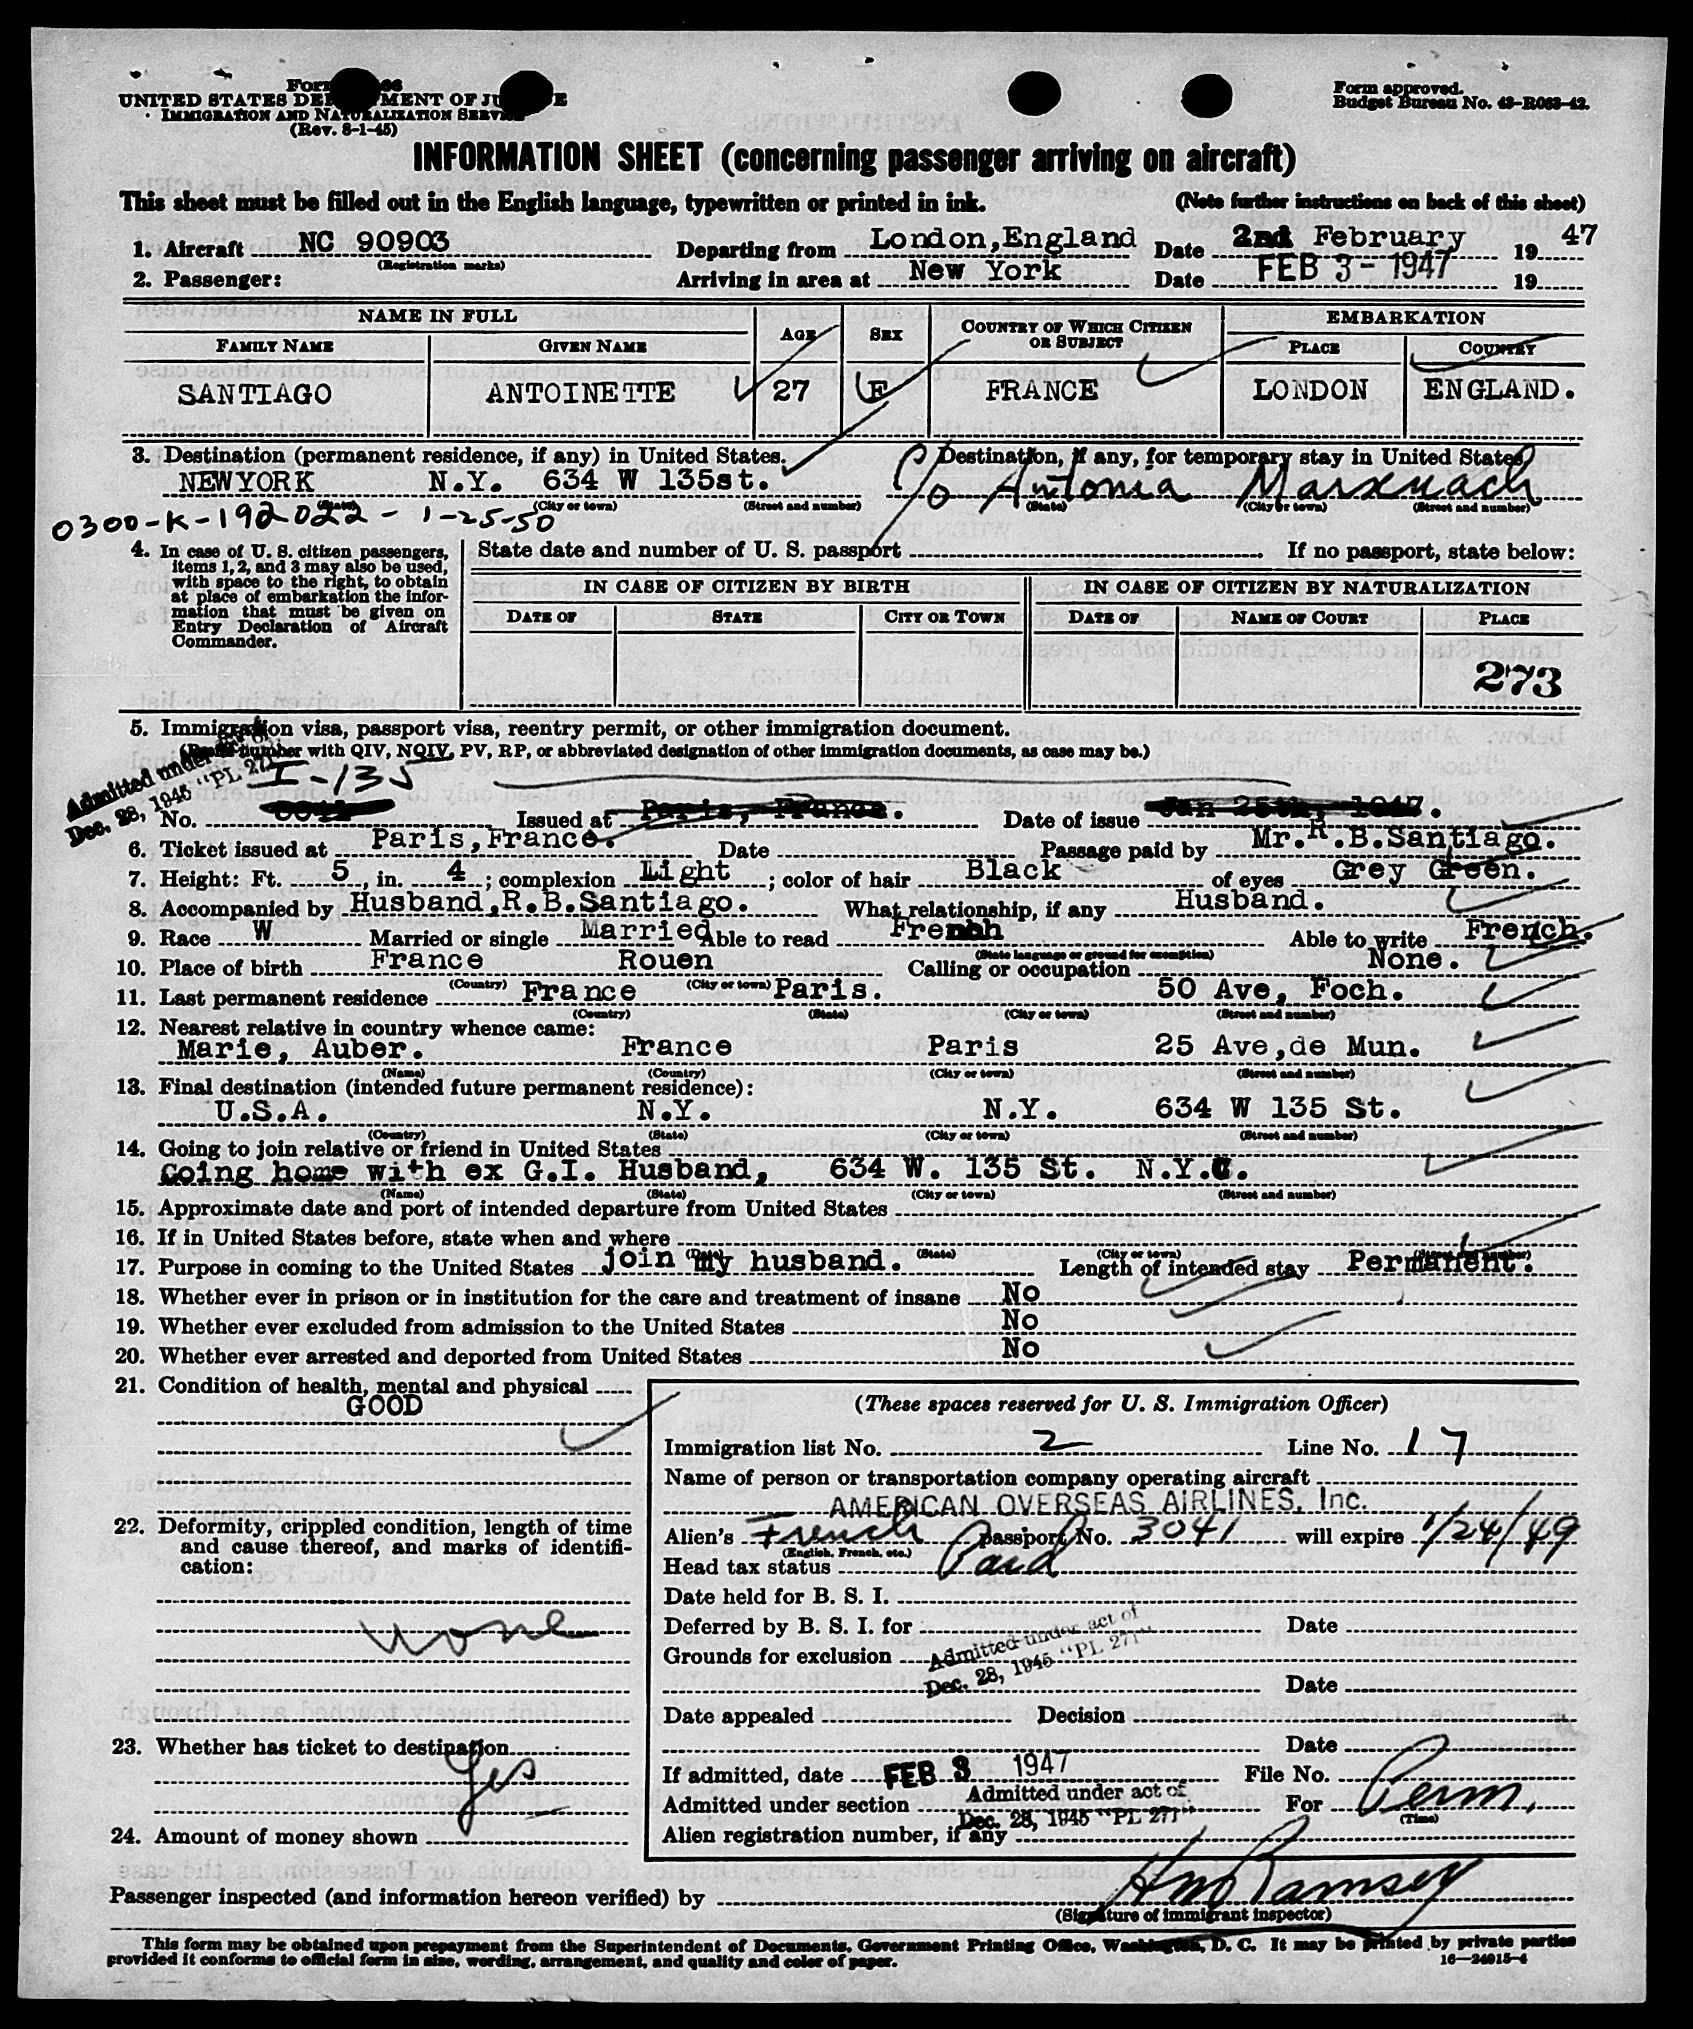 Form 66
UNITED STATES DEPARTMENT OF JUSTICE
IMMIGRATION AND NATURALIZATION SERVICE
(Rev. 8-1-45)
Form approved.
Budget Bureau No. 43-R063-42.
INFORMATION SHEET (concerning passenger arriving on aircraft)
This sheet must be filled out in the English language, typewritten or printed in ink. (Note further instructions on back of this sheet)
1. Aircraft NC 90903 Departing from London, England Date 2nd February 19 47
(Registration marks)
2. Passenger: Arriving in area at New York Date FEB 3 - 1947 19
NAME IN FULL AGE SEX COUNTRY OF WHICH CITIZEN OR SUBJECT EMBARKATION
FAMILY NAME GIVEN NAME PLACE COUNTRY
SANTIAGO ANTOINETTE 27 F FRANCE LONDON ENGLAND.
3. Destination (permanent residence, if any) in United States. Destination, if any, for temporary stay in United States
NEWYORK N.Y. 634 W 135st. C/o Antonia Marxuach
(State) (City or town) (Street and number) (State) (City or town) (Street and number)
0300-K-192022 - 1-25-50
4. In case of U. S. citizen passengers, items 1, 2, and 3 may also be used, with space to the right, to obtain at place of embarkation the information that must be given on Entry Declaration of Aircraft Commander.
State date and number of U. S. passport If no passport, state below:
IN CASE OF CITIZEN BY BIRTH IN CASE OF CITIZEN BY NATURALIZATION
DATE OF STATE CITY OR TOWN DATE OF NAME OF COURT PLACE
273
5. Immigration visa, passport visa, reentry permit, or other immigration document.
number with QIV, NQIV, PV, RP, or abbreviated designation of other immigration documents, as case may be.)
Admitted under
Dec. 28, 1945 "PL 271"
I-135
No. Issued at Paris, France. Date of issue Jan 25th, 1947.
6. Ticket issued at Paris,France. Date Passage paid by Mr.R.B.Santiago.
7. Height: Ft. 5, in. 4; complexion Light; color of hair Black of eyes Grey Green.
8. Accompanied by Husband,R.B.Santiago. What relationship, if any Husband.
9. Race W Married or single Married Able to read French Able to write French.
(State language or ground for exemption)
10. Place of birth France Rouen Calling or occupation None.
(Country) (City or town)
11. Last permanent residence France Paris. 50 Ave, Foch.
(Country) (State) (City or town) (Street and number)
12. Nearest relative in country whence came:
Marie, Auber. France Paris 25 Ave,de Mun.
(Name) (Country) (City or town) (Street and number)
13. Final destination (intended future permanent residence):
U.S.A. N.Y. N.Y. 634 W 135 St.
(Country) (State) (City or town) (Street and number)
14. Going to join relative or friend in United States
Going home with ex G.I. Husband, 634 W. 135 St. N.Y.C.
(Name) (State) (City or town) (Street and number)
15. Approximate date and port of intended departure from United States
16. If in United States before, state when and where
(Date) (State) (City or town) (Street and number)
17. Purpose in coming to the United States join my husband. Length of intended stay Permanent.
18. Whether ever in prison or in institution for the care and treatment of insane No
19. Whether ever excluded from admission to the United States No
20. Whether ever arrested and deported from United States No
21. Condition of health, mental and physical
GOOD
22. Deformity, crippled condition, length of time and cause thereof, and marks of identification:
None
23. Whether has ticket to destination
Yes
24. Amount of money shown
(These spaces reserved for U. S. Immigration Officer)
Immigration list No. 2 Line No. 17
Name of person or transportation company operating aircraft
AMERICAN OVERSEAS AIRLINES, Inc.
Alien's French passport No. 3041 will expire 1/24/49
(English, French, etc.)
Head tax status Paid
Date held for B. S. I.
Deferred by B. S. I. for Date
Grounds for exclusion
Admitted under act of
Dec. 28, 1945 "PL 271"
Date
Date appealed Decision
Date
If admitted, date FEB 3 1947 File No.
Admitted under section Admitted under act of For Perm.
Dec. 28, 1945 "PL 271"
(Time)
Alien registration number, if any
Passenger inspected (and information hereon verified) by Ramsey
(Signature of immigrant inspector)
This form may be obtained upon prepayment from the Superintendent of Documents, Government Printing Office, Washington, D. C. It may be printed by private parties
provided it conforms to official form in size, wording, arrangement, and quality and color of paper. 16—24915-4